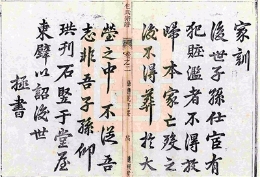 家訓
後世子孫仕宦有
犯賍濫者不得放
歸本家亡歿之
後不得葬於大
塋之中不從吾
志非吾子孫仰
珙刊石竪于堂屋
東壁以詔後世
極書